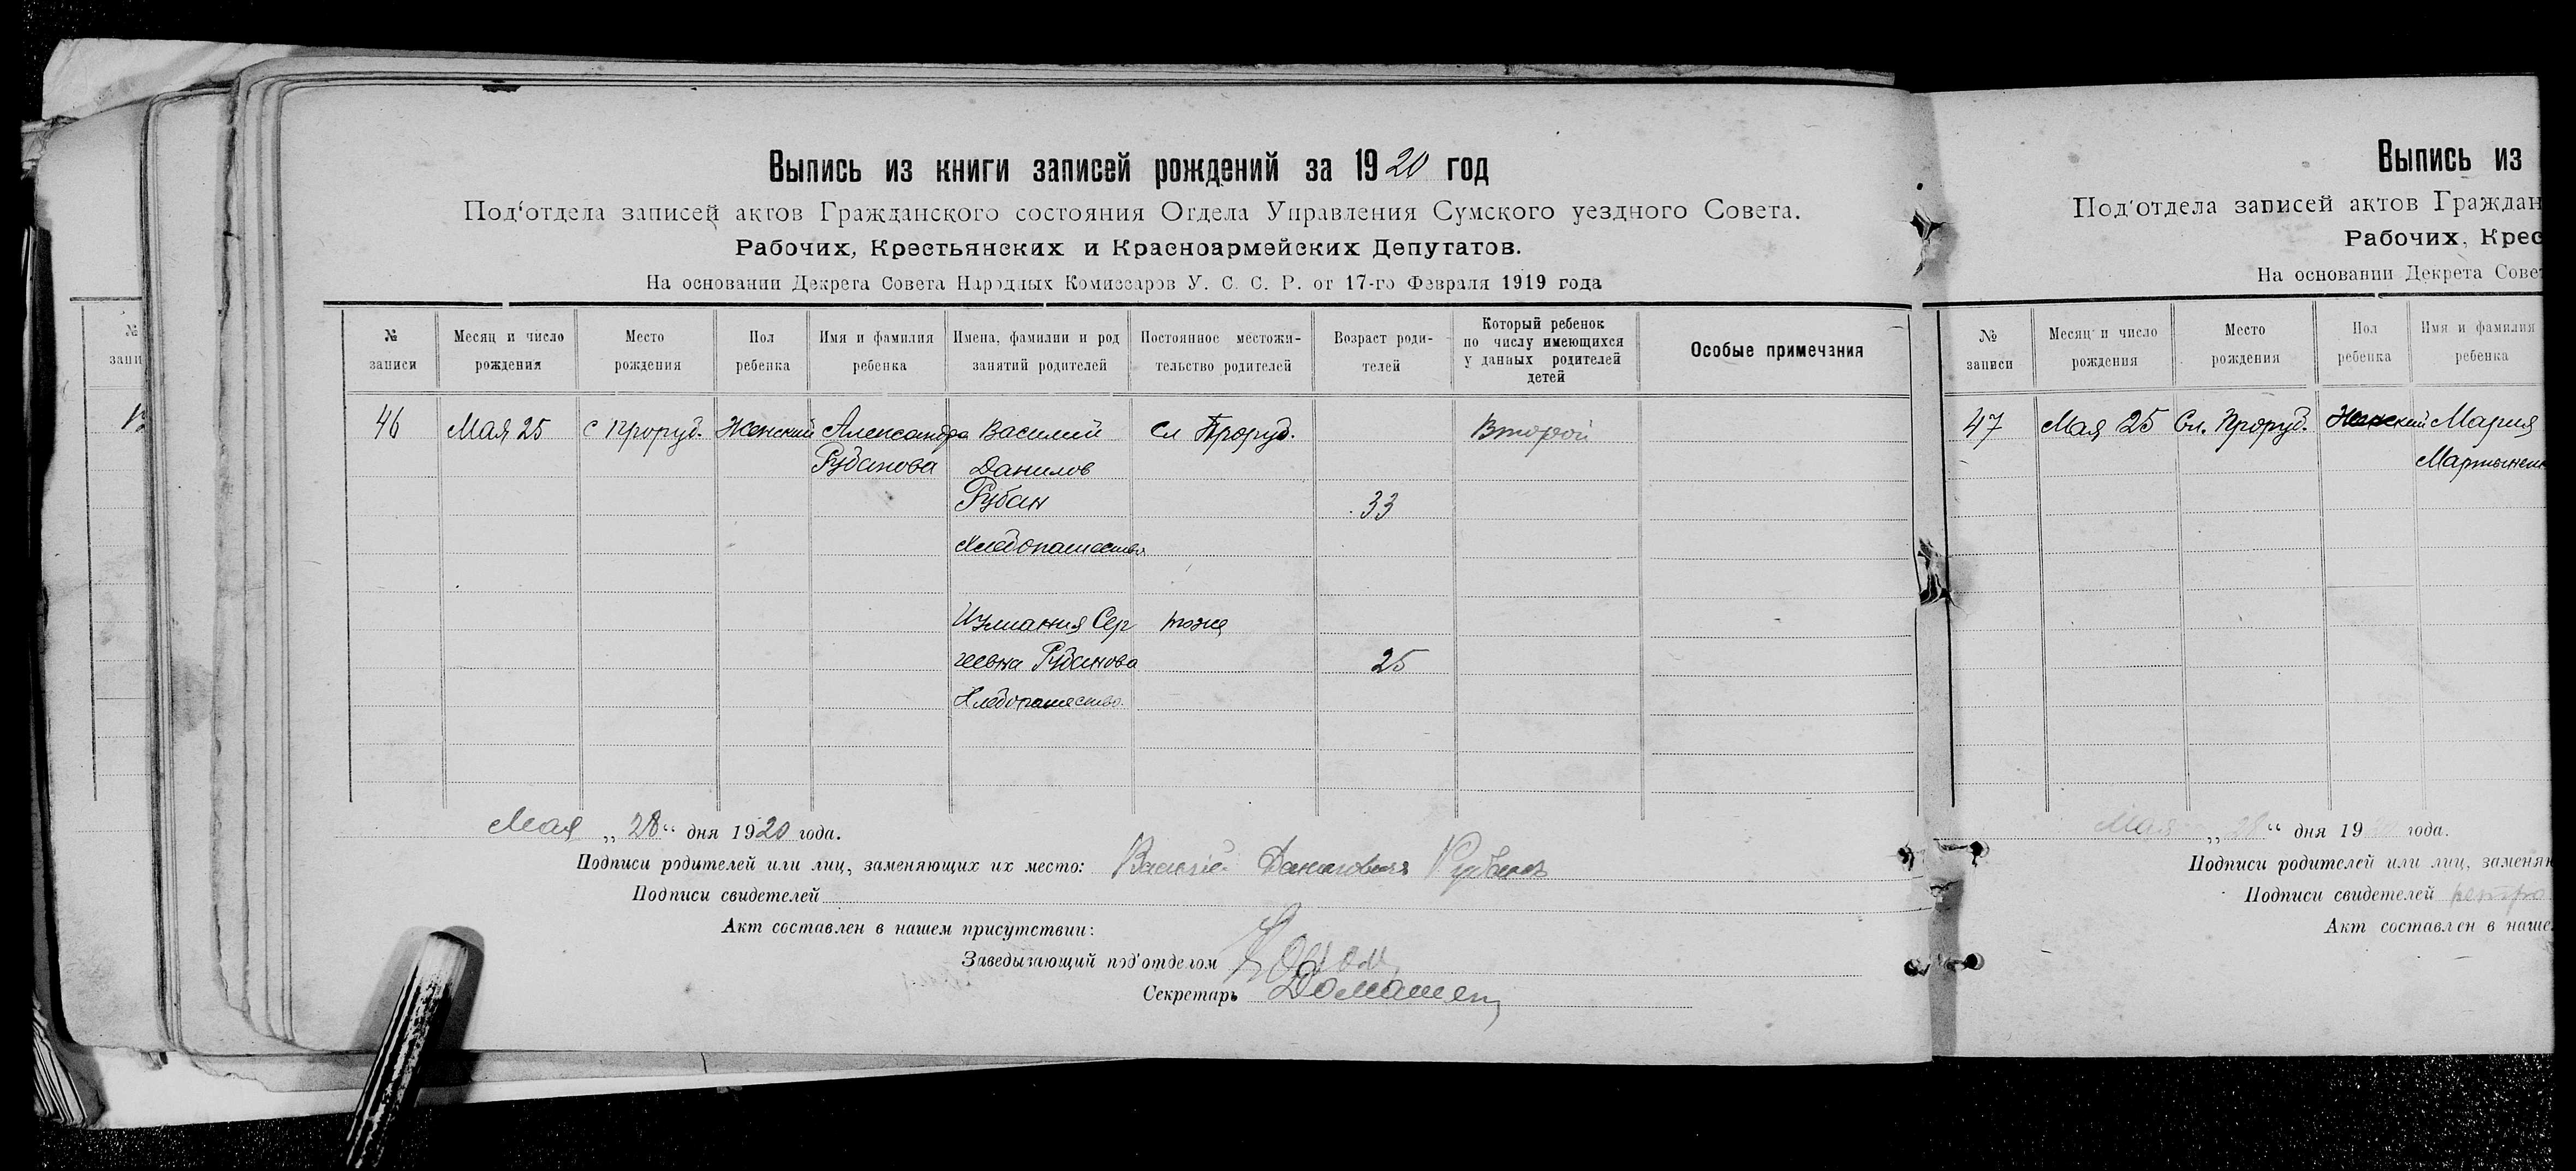 Выпись из книги записей рождений за 1920 год
Под'отдела записей актов Гражданского состояния Отдела Управления Сумского уездного Совета.
Рабочих, Крестьянских и Красноармейских Депутатов.
На основании Декрета Совета Народных Комиссаров У. С. С. Р. от 17-го Февраля 1919 года
№ записи
Месяц и число рождения
Место рождения
Пол ребенка
Имя и фамилия ребенка
Имена, фамилии и род занятий родителей
Постоянное местожи-тельство родителей
Возраст роди-телей
Который ребенок по числу имеющихся у данных родителей детей
Особые примечания
46 Мая 25 с Проруб. Женский Александра Василий Сл Проруб. Второй
Рубанова Данилов
Рубан 33
Хлебопашество
Сер тоже
геевна Рубанова 25
Хлебопашество.
Мая „28“ дня 1920 года.
Подписи родителей или лиц, заменяющих их место: Данилович
Подписи свидетелей
Акт составлен в нашем присутствии:
Заведывающий под'отделом
Секретарь
Выпись из
Под'отдела записей актов Граждан
Рабочих, Крес
На основании Декрета Совет
№ записи
Месяц и число рождения
Место рождения
Пол ребенка
Имя и фамилия ребенка
47 Мая 25 Сл. Проруб. Женский Мария
Мартыненк
Мая „28“ дня 1920 года.
Подписи родителей или лиц, заменяю
Подписи свидетелей
Акт составлен в наше
№
запи